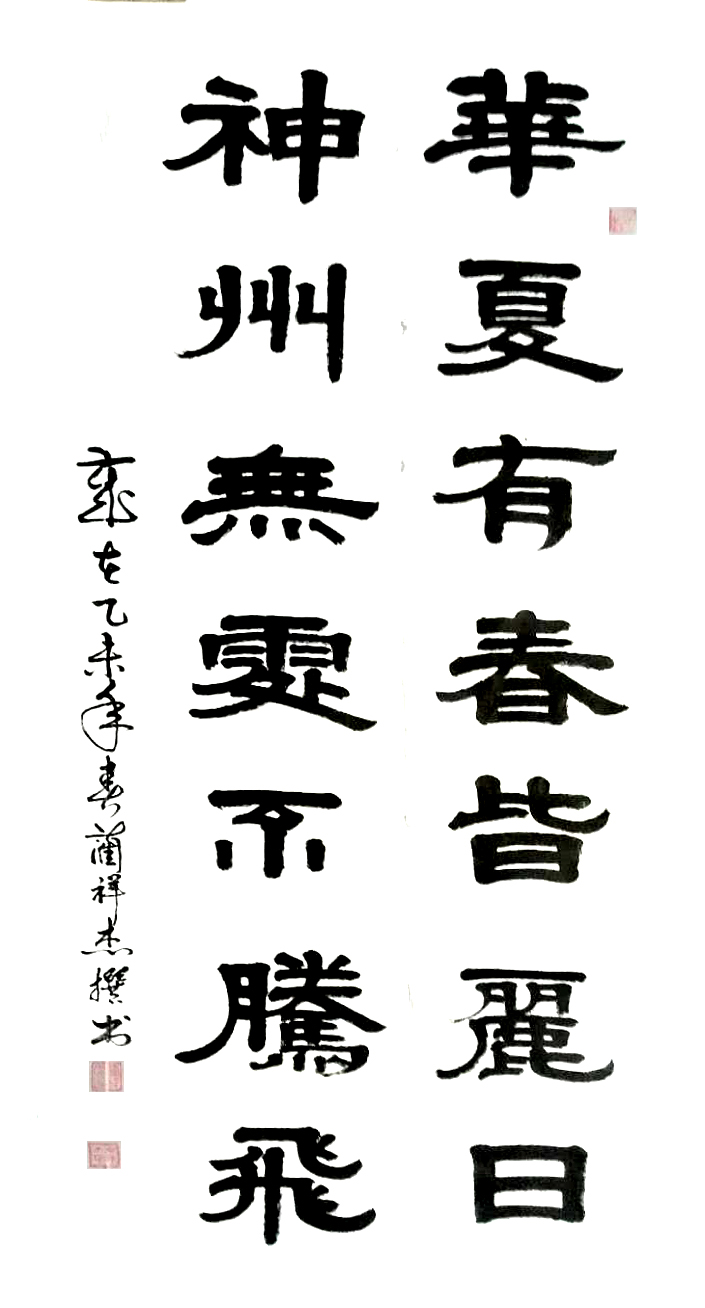 華夏有春皆麗日
神州無處不騰飛
歲在乙未年春藺祥杰撰书